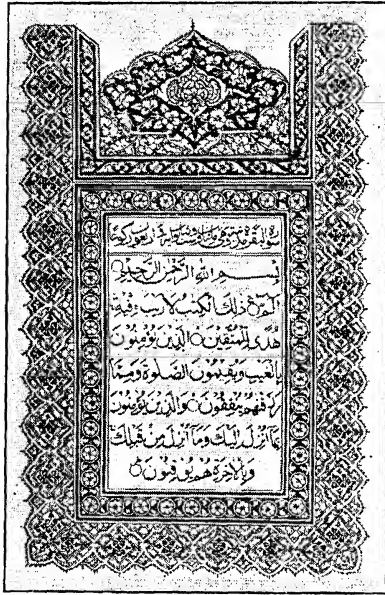 سورة البقرة مدنية وهي
بِسْمِ اللهِ الرَّحْمٰنِ الرَّحِيْمِ
الٓمّٓ ذٰلِكَ الْكِتٰبُ لَا رَيْبَ فِيْهِ
هُدًى لِّلْمُتَّقِيْنَ الَّذِيْنَ يُؤْمِنُوْنَ
بِالْغَيْبِ وَيُقِيْمُوْنَ الصَّلٰوةَ وَمِمَّا
رَزَقْنٰهُمْ يُنْفِقُوْنَ وَالَّذِيْنَ يُؤْمِنُوْنَ
بِمَآ اُنْزِلَ اِلَيْكَ وَمَآ اُنْزِلَ مِنْ قَبْلِكَ
وَبِالْاٰخِرَةِ هُمْ يُوْقِنُوْنَ